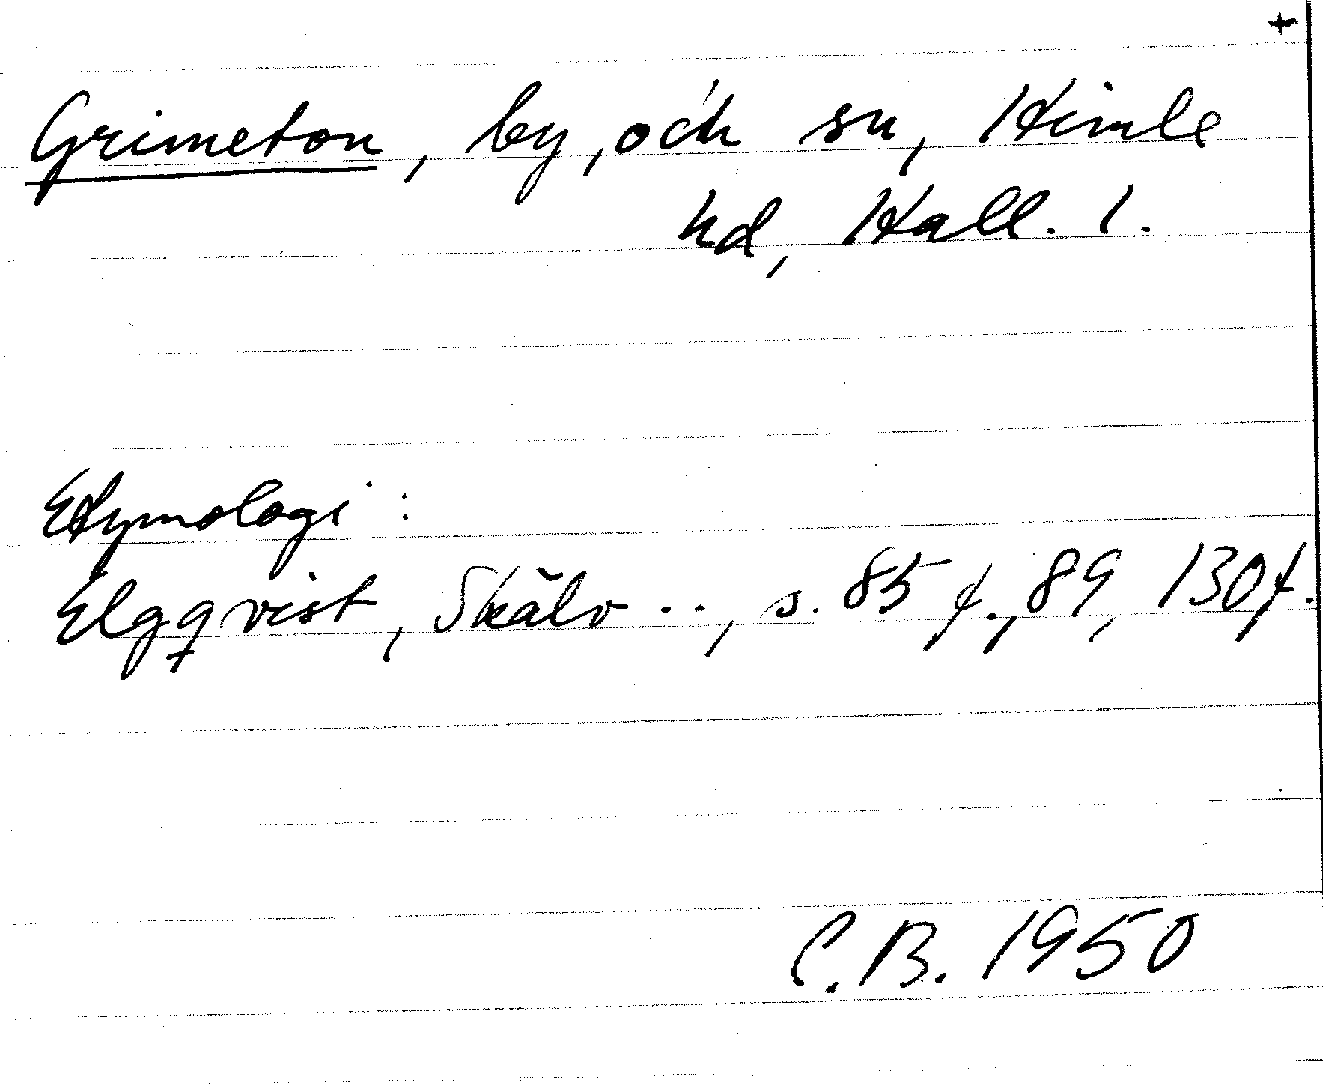 +
Grimeton, by, och sn, Himle
hd, Hall. l.
Etymologi:
Elgqvist, Skälv .., s. 85 f., 89, 130 f.
C.B. 1950